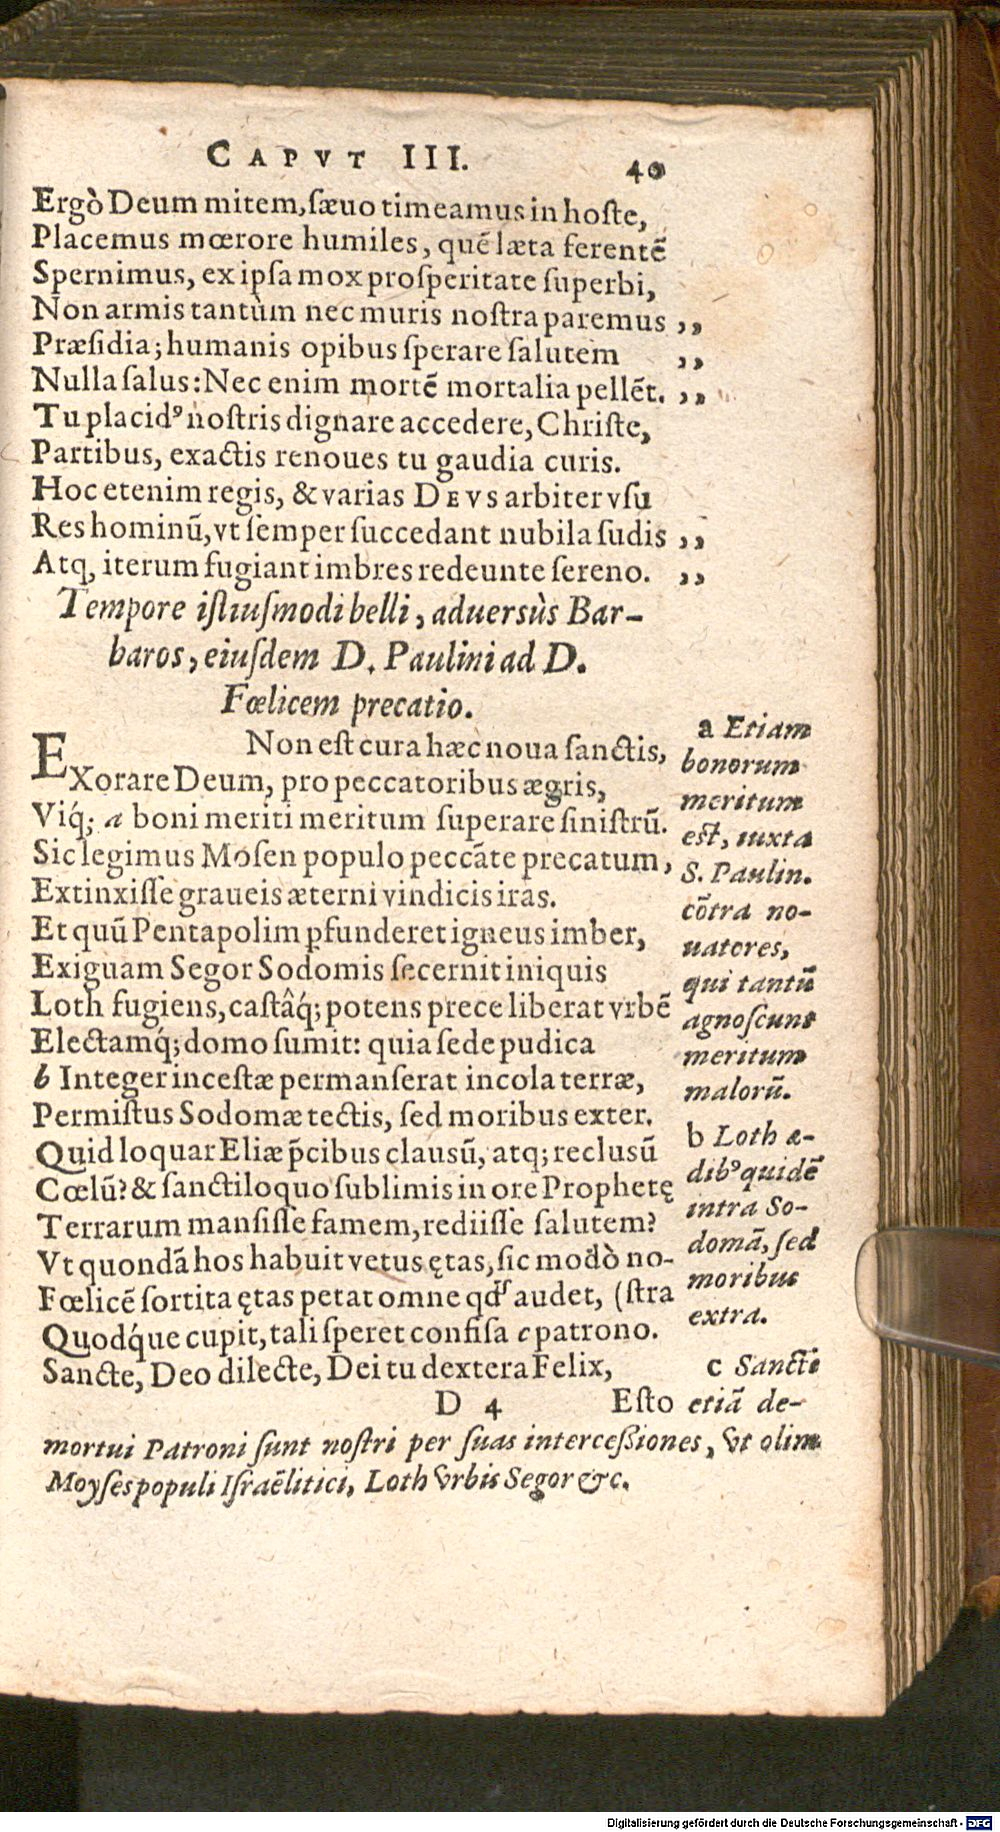 CAPVT III. 40
Ergò Deum mitem, sæuo timeamus in hoste,
Placemus mœrore humiles, quē læta ferentē
Spernimus, ex ipsa mox prosperitate superbi,
Non armis tantùm nec muris nostra paremus ,,
Præsidia; humanis opibus sperare salutem ,,
Nulla salus: Nec enim mortē mortalia pellēt. ,,
Tu placidꝰ nostris dignare accedere, Christe,
Partibus, exactis renoues tu gaudia curis.
Hoc etenim regis, & varias DEVS arbiter vsu
Res hominū, vt semper succedant nubila sudis ,,
Atq, iterum fugiant imbres redeunte sereno. ,,
Tempore istiusmodi belli, aduersùs Bar-
baros, eiusdem D. Paulini ad D.
Fœlicem precatio.
Non est cura hæc noua sanctis,
EXorare Deum, pro peccatoribus ægris,
Viq́; a boni meriti meritum superare sinistrū.
Sic legimus Mosen populo peccāte precatum,
Extinxisse graueis æterni vindicis iras.
Et quū Pentapolim ꝑfunderet igneus imber,
Exiguam Segor Sodomis secernit iniquis
Loth fugiens, castâq́; potens prece liberat vrbē
Electamq́; domo sumit: quia sede pudica
b Integer incestæ permanserat incola terræ,
Permistus Sodomæ tectis, sed moribus exter.
Quid loquar Eliæ p̄cibus clausū, atq; reclusū
Cœlū? & sanctiloquo sublimis in ore Prophetę
Terrarum mansisse famem, rediisse salutem?
Vt quondā hos habuit vetus ętas, sic modò no-
Fœlicē sortita ętas petat omne qd' audet, (stra
Quodq́ue cupit, tali speret confisa c patrono.
Sancte, Deo dilecte, Dei tu dextera Felix,
D 4 Esto
a Etiam
bonorum
meritum
est, iuxta
S. Paulin.
cōtra no-
uatores,
qui tantū
agnoscunt
meritum
malorū.
b Loth æ-
dibꝰ quidē
intra So-
domā, sed
moribus
extra.
c Sancti
etiā de-
mortui Patroni sunt nostri per suas intercessiones, vt olim
Moyses populi Israëlitici, Loth vrbis Segor &c.
Digitalisierung gefördert durch die Deutsche Forschungsgemeinschaft - DFG